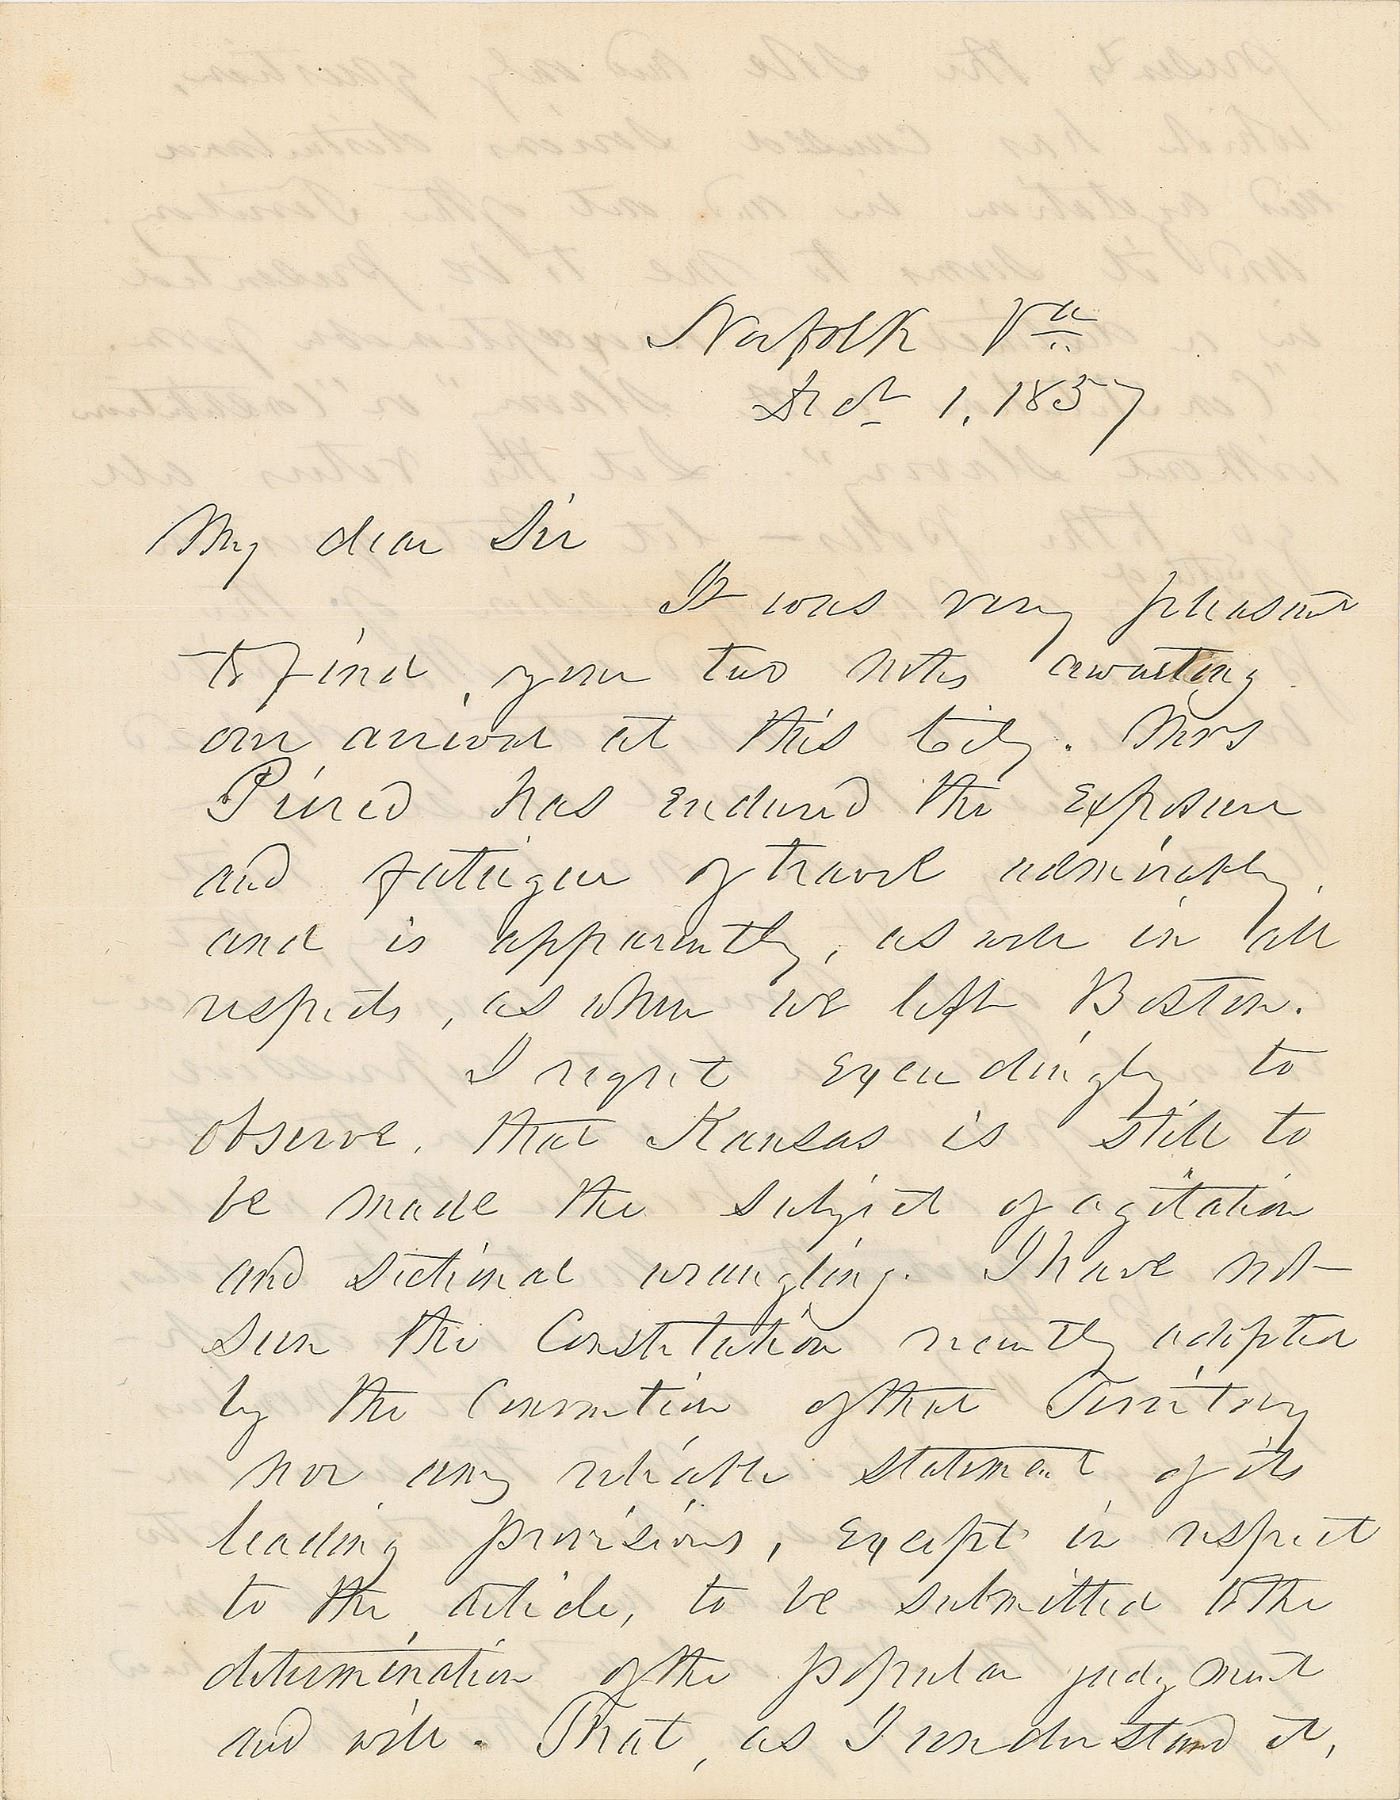 Norfolk Va
Decr 1, 1857
My dear Sir
It was very pleasant
to find your two notes awaiting
our arrival at this City. Mrs
Pierce has endured the exposure
and fatigue of travel admirably,
and is apparently, as well in all
respects, as when we left Boston.
I regret exceedingly to
observe, that Kansas is still to
be made the subject of agitation
and sectional wrangling. I have not
seen the Constitution recently adopted
by the Convention of that Territory
nor any reliable statement of its
leading provisions, except in respect
to the article, to be submitted to the
determination of the popular judgment
and will. That, as I understand it,